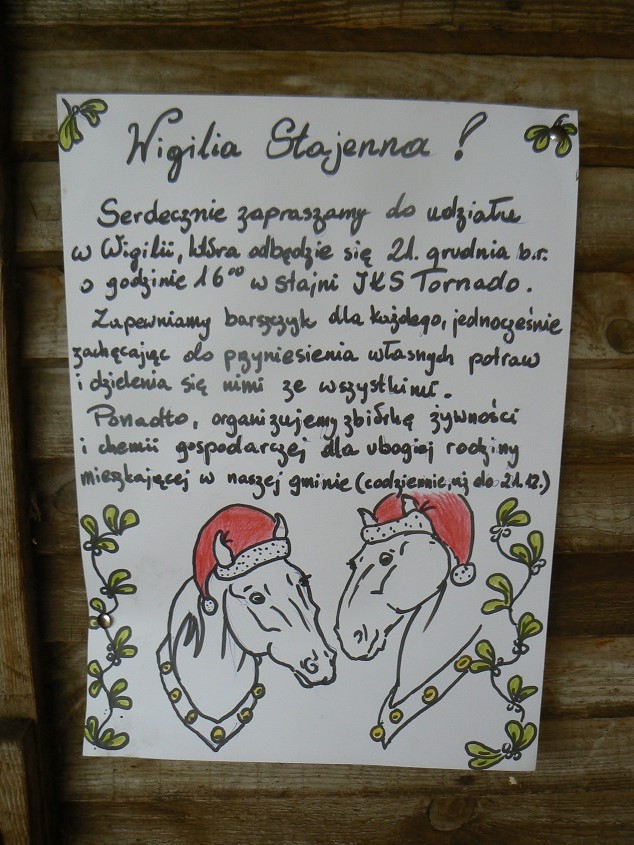 Wigilia Stajenna!
Serdecznie zapraszamy do udziału
w Wigilii, która odbędzie się 21. grudnia b.r.
o godzinie 16⁰⁰ w stajni JKS Tornado.
Zapewniamy barszczyk dla każdego, jednocześnie
zachęcając do przyniesienia własnych potraw
i dzielenia się nimi ze wszystkimi.
Ponadto, organizujemy zbiórkę żywności
i chemii gospodarczej dla ubogiej rodziny
mieszkającej w naszej gminie (codziennie, aż do 21.12.)